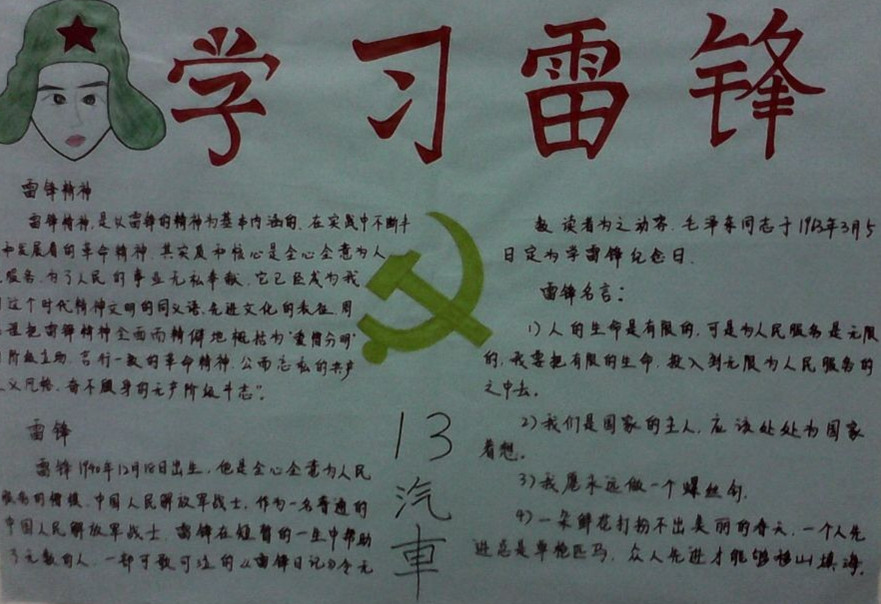 学习雷锋
雷锋精神
雷锋精神,是以雷锋的精神为基本内涵的,在实践中不断丰
和发展着的革命精神,其实质和核心是全心全意为人
服务,为了人民的事业无私奉献,它已经成为我
这个时代精神文明的同义语,先进文化的表征.周
理把雷锋精神全面而精僻地概括为“爱憎分明
阶级立场,言行一致的革命精神,公而忘私的共产
义风格、奋不顾身的无产阶级斗志”。
雷锋
雷锋1940年12月18日出生,他是全心全意为人民
服务的楷模,中国人民解放军战士,作为一名普通的
中国人民解放军战士,雷锋在短暂的一生中帮助
了无数的人,一部可歌可泣的《雷锋日记》令无
13
汽
車
数读者为之动容,毛泽东同志于1963年3月5
日定为学雷锋纪念日.
雷锋名言:
1)人的生命是有限的,可是为人民服务是无限
的,我要把有限的生命,投入到无限为人民服务的
之中去。
2)我们是国家的主人,应该处处为国家
着想。
3)我愿永远做一个螺丝钉.
4)一朵鲜花打扮不出美丽的春天,一个人先
进总是单枪匹马,众人先进才能够移山填海.